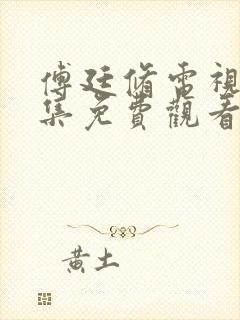 傅廷脩電視
集免費觀看
黃土